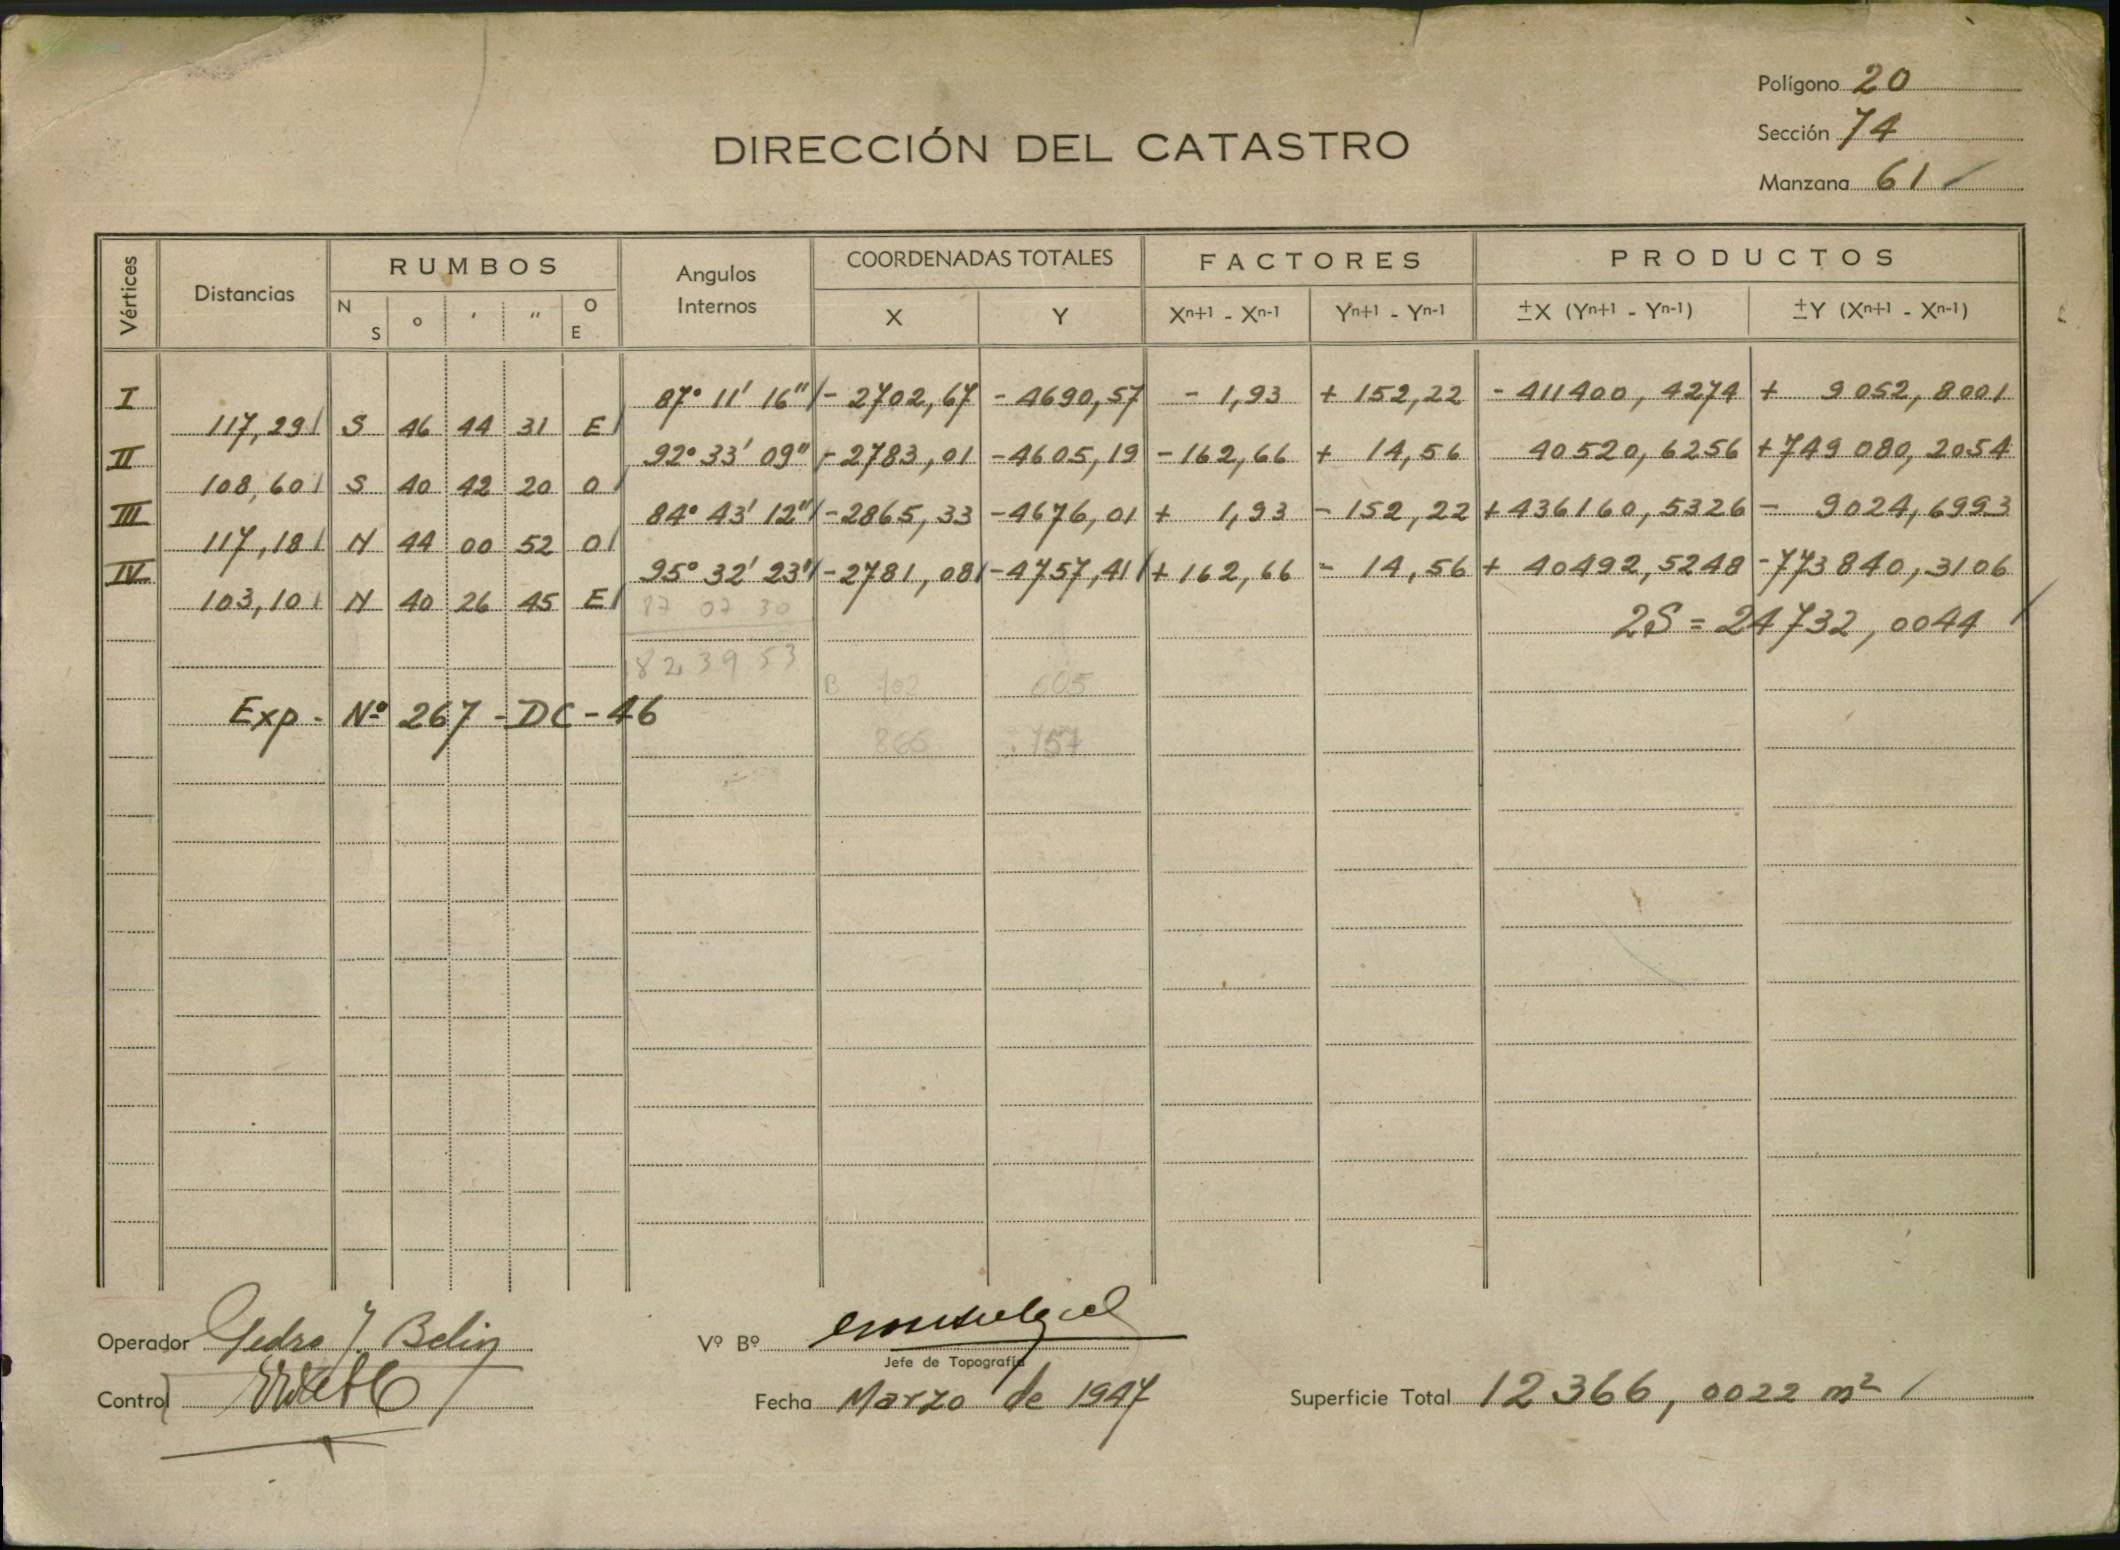 Polígono 20
Sección 74
Manzana 61
DIRECCIÓN DEL CATASTRO
Vértices Distancias RUMBOS Angulos Internos COORDENADAS TOTALES FACTORES PRODUCTOS
N S ° ' " O E X Y Xn+1 - Xn-1 Yn+1 - Yn-1 ±X (Yn+1 - Yn-1) ±Y (Xn+1 - Xn-1)
I 87° 11' 16" - 2702,67 - 4690,57 - 1,93 + 152,22 - 411400,4274 + 9052,8001
117,29 S 46 44 31 E
II 92° 33' 09" - 2783,01 - 4605,19 - 162,66 + 14,56 40520,6256 + 749080,2054
108,60 S 40 42 20 O
III 84° 43' 12" - 2865,33 - 4676,01 + 1,93 - 152,22 + 436160,5326 - 9024,6993
117,18 N 44 00 52 O
IV 95° 32' 23" - 2781,08 - 4757,41 + 162,66 - 14,56 + 40492,5248 - 773840,3106
103,10 N 40 26 45 E 87 07 30
2S = 24732,0044
182 39 53
B 702 605
Exp. Nº 267 - DC - 46
865 757
Operador Pedro J. Belin
Vº Bº
Jefe de Topografía
Control
Fecha Marzo de 1947
Superficie Total 12366,0022 m²